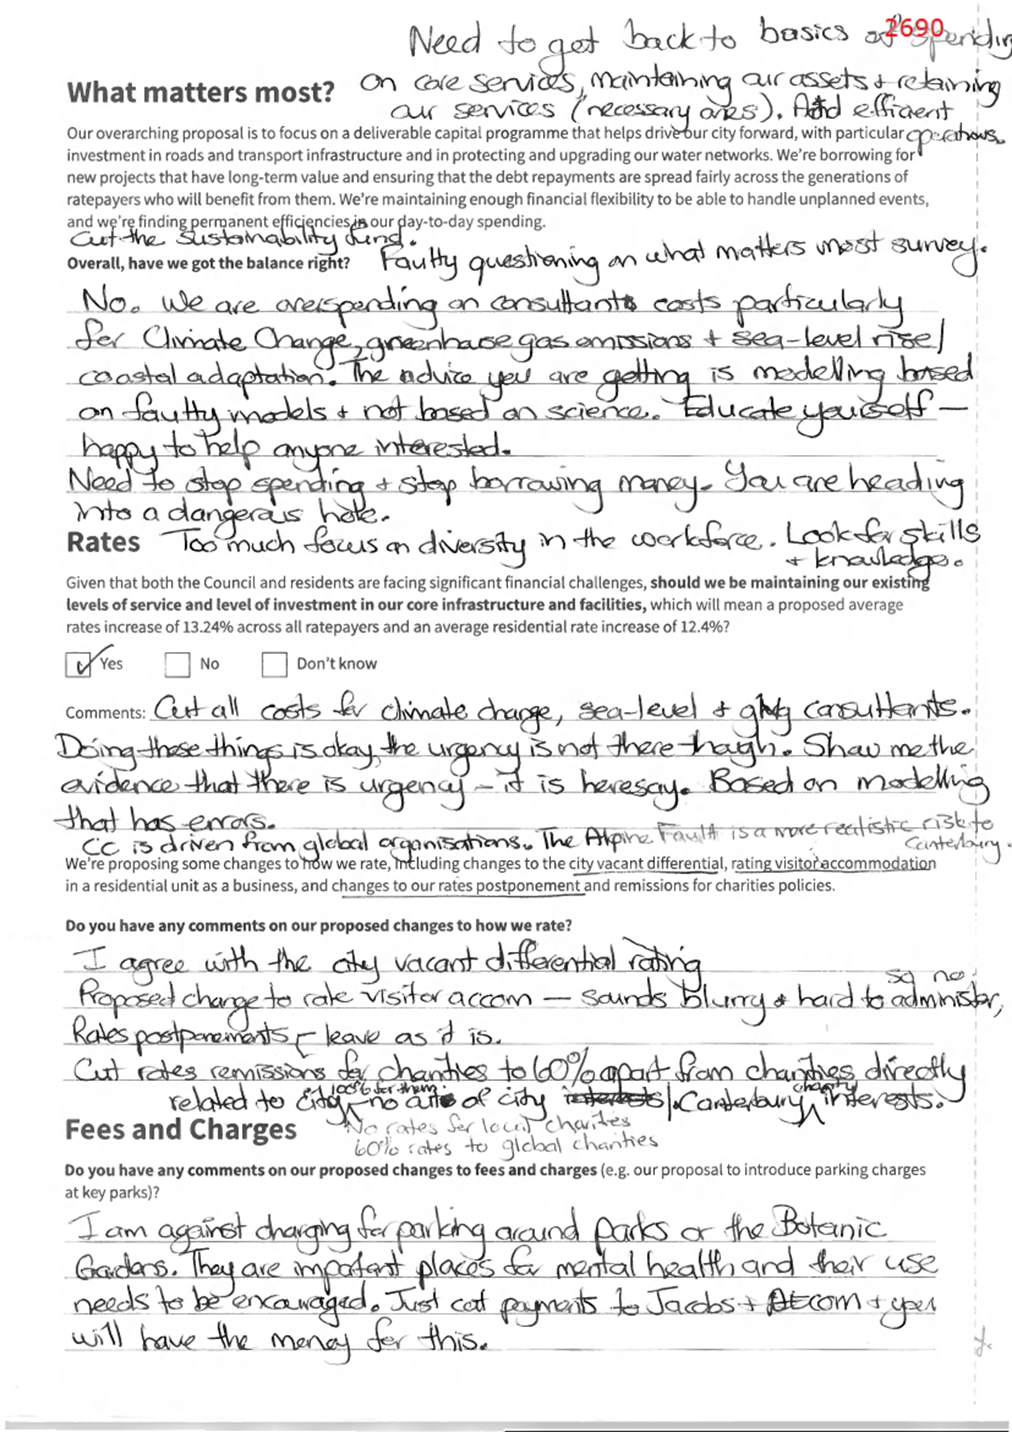 2690
Need to get back to basics of spending
on core services, maintaining our assets + retaining
our services (necessary ones). And efficient
operations.
What matters most?
Our overarching proposal is to focus on a deliverable capital programme that helps drive our city forward, with particular
investment in roads and transport infrastructure and in protecting and upgrading our water networks. We're borrowing for
new projects that have long-term value and ensuring that the debt repayments are spread fairly across the generations of
ratepayers who will benefit from them. We're maintaining enough financial flexibility to be able to handle unplanned events,
and we're finding permanent efficiencies in our day-to-day spending.
Cut the Sustainability fund.
Overall, have we got the balance right? Faulty questioning on what matters most survey.
No. We are overspending on consultants costs particularly
for Climate Change, greenhouse gas emissions + sea-level rise/
coastal adaptation. The advice you are getting is modelling based
on faulty models + not based on science. Educate yourself –
happy to help anyone interested.
Need to stop spending + stop borrowing money. You are heading
into a dangerous hole.
Rates Too much focus on diversity in the workforce. Look for skills
+ knowledge.
Given that both the Council and residents are facing significant financial challenges, should we be maintaining our existing
levels of service and level of investment in our core infrastructure and facilities, which will mean a proposed average
rates increase of 13.24% across all ratepayers and an average residential rate increase of 12.4%?
Yes No Don't know
Comments: Cut all costs for climate change, sea-level + ghg consultants.
Doing these things is okay, the urgency is not there though. Show me the
evidence that there is urgency – it is heresay. Based on modelling
that has errors.
CC is driven from global organisations. The Alpine Fault is a more realistic risk to
Canterbury.
We're proposing some changes to how we rate, including changes to the city vacant differential, rating visitor accommodation
in a residential unit as a business, and changes to our rates postponement and remissions for charities policies.
Do you have any comments on our proposed changes to how we rate?
I agree with the city vacant differential rating
Proposed change to rate visitor accom – sounds blurry + hard to administer, so no.
Rates postponements – leave as it is.
Cut rates remissions for charities to 60% apart from charities directly
related to city 100% for them – no out of city interests. Canterbury charity interests.
No rates for local charities
60% rates to global charities
Fees and Charges
Do you have any comments on our proposed changes to fees and charges (e.g. our proposal to introduce parking charges
at key parks)?
I am against charging for parking around parks or the Botanic
Gardens. They are important places for mental health and their use
needs to be encouraged. Just cut payments to Jacobs + Aecom + you
will have the money for this.